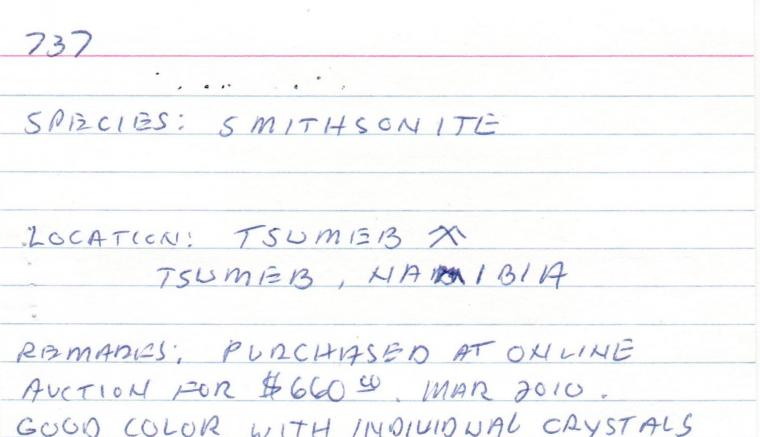 737
SPECIES: SMITHSONITE
LOCATION: TSUMEB
TSUMEB, NAMIBIA
REMARKS: PURCHASED AT ONLINE
AUCTION FOR $660⁰⁰. MAR 2010.
GOOD COLOR WITH INDIVIDUAL CRYSTALS